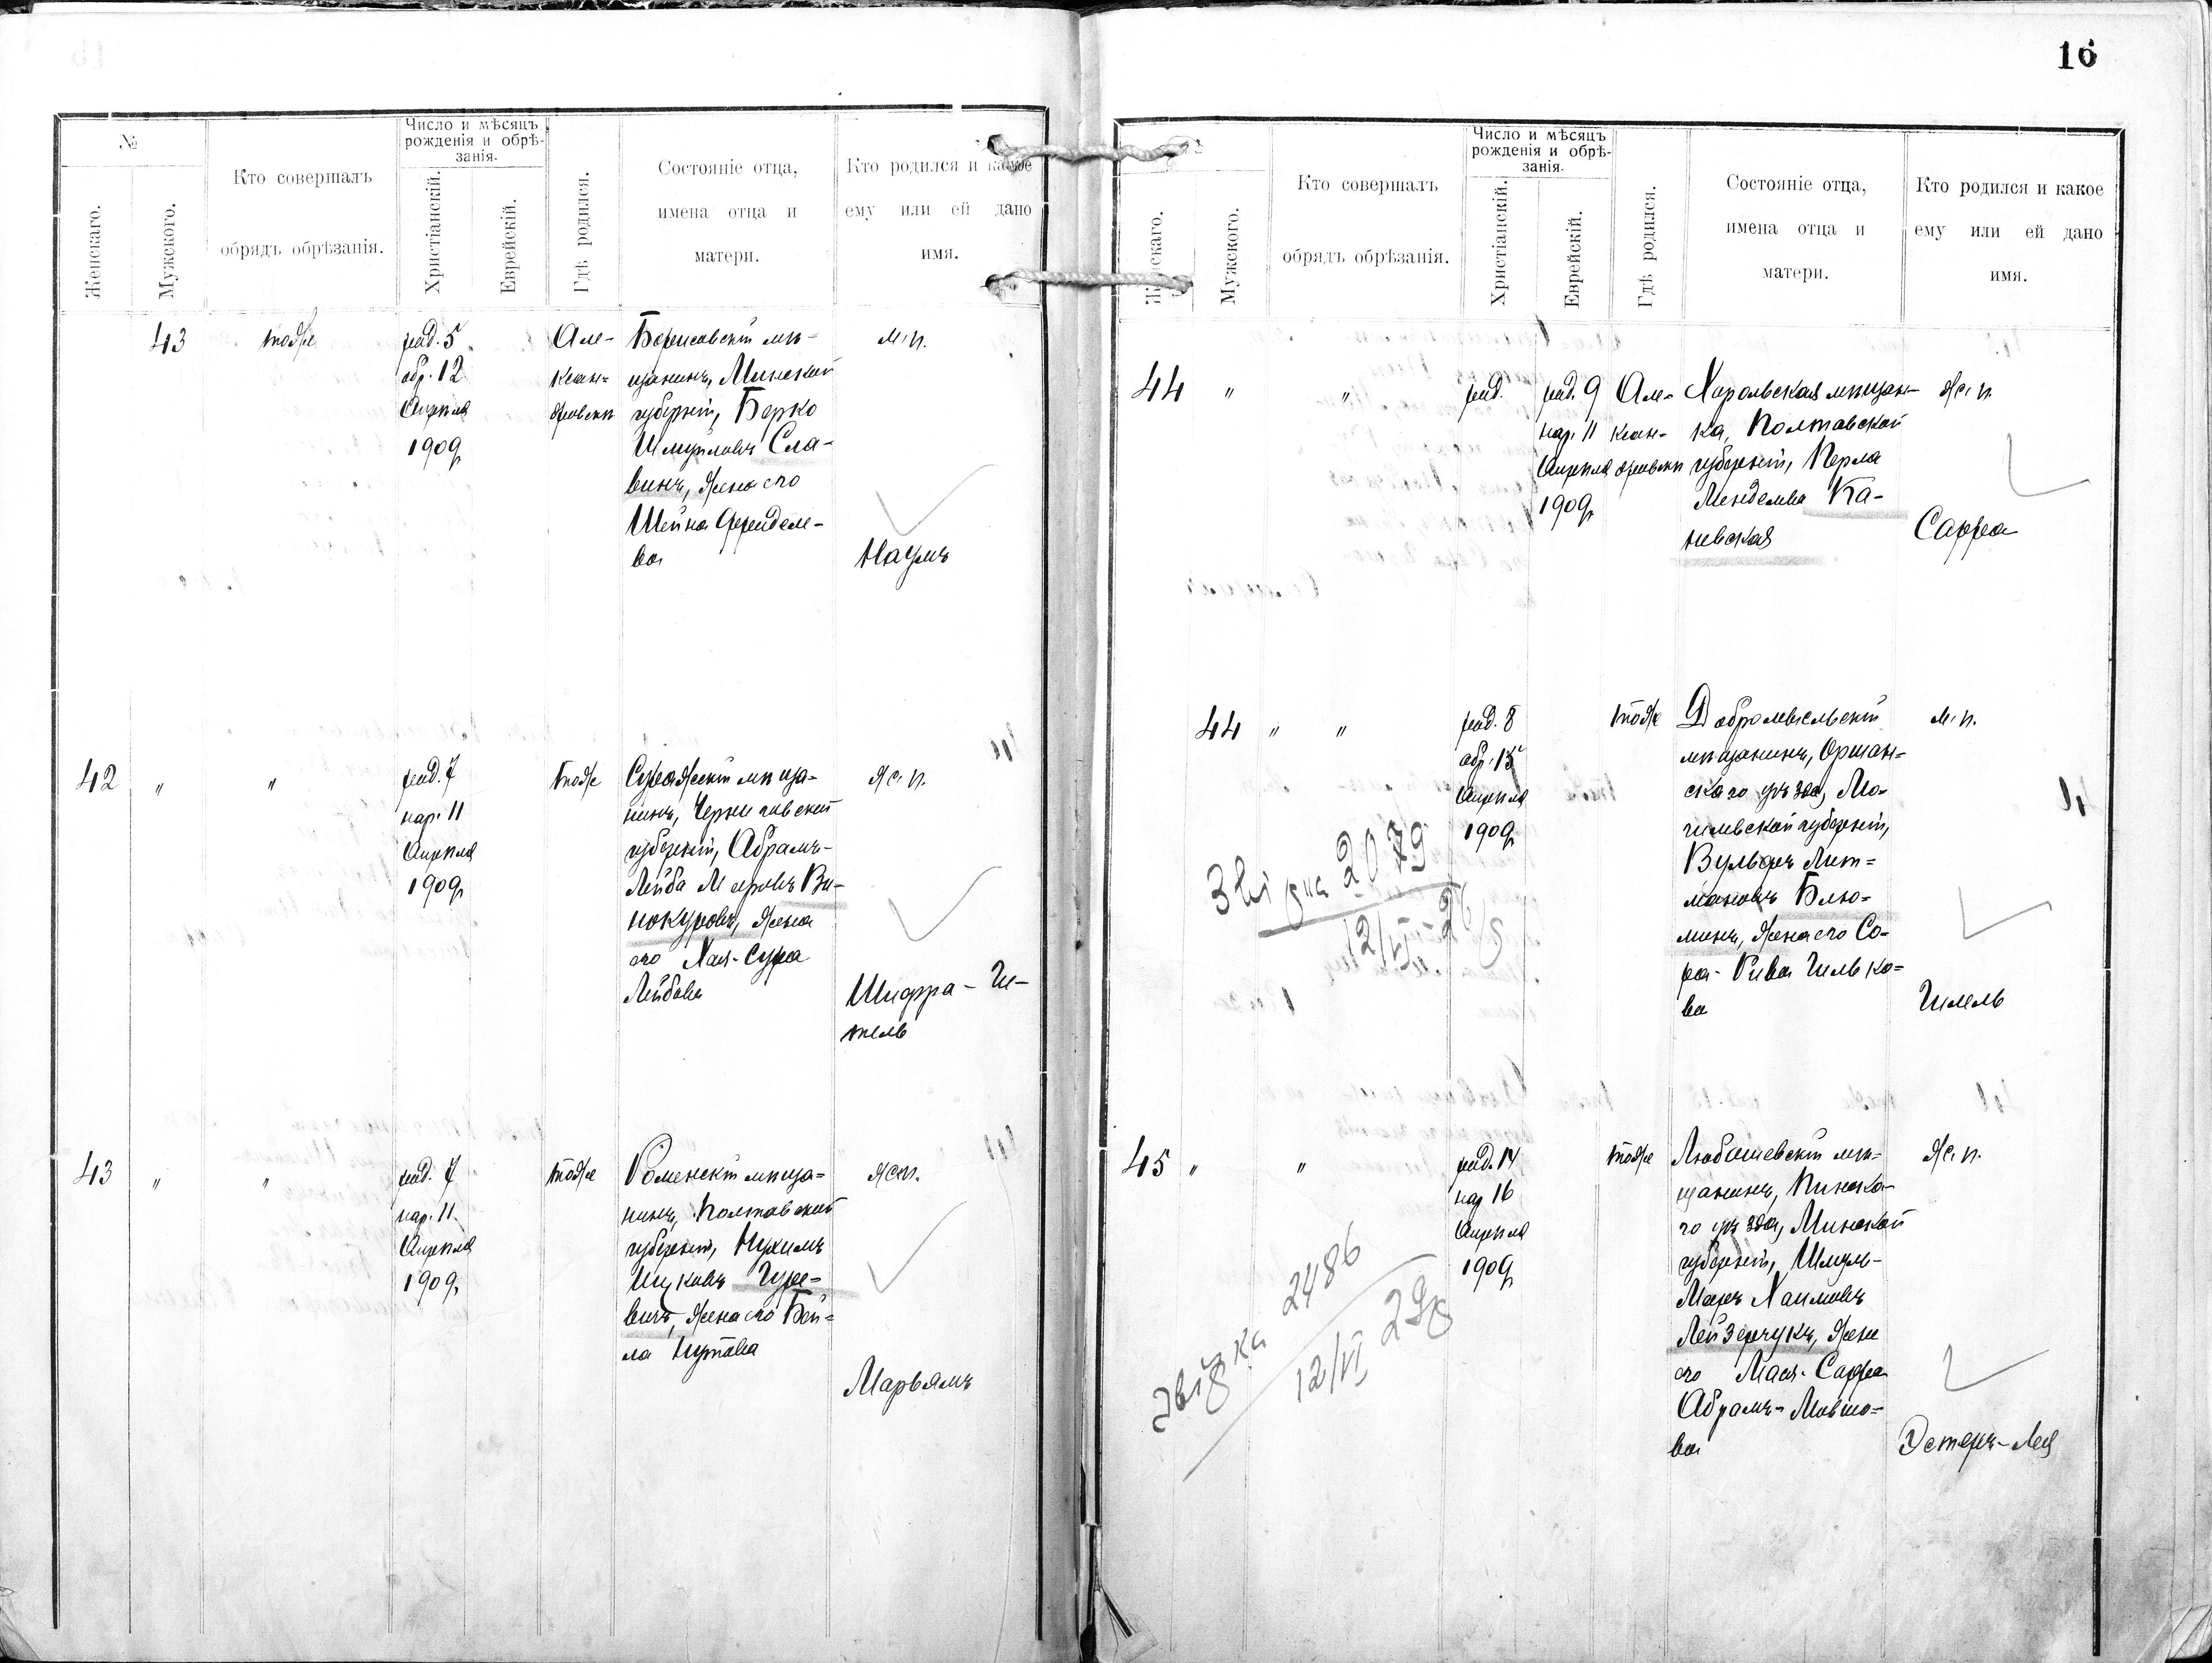 16
№
Женскаго.
Мужского.
Кто совершалъ
обрядъ обрѣзанія.
Число и мѣсяцъ
рожденія и обрѣ-
занія.
Христіанскій.
Еврейскій.
Гдѣ родился.
Состояніе отца,
имена отца и
матери.
Кто родился и какое
ему или ей дано
имя.
43
тоже
род. 5
обр. 12
Апрѣля
1909
Але-
ксан-
дровскѣ
Борисовскій мѣ-
щанинъ, Минской
губерніи, Берко
Шмуйловъ Сла-
винъ, жена его
Шейна Фрейделе-
ва
м. п.
Наумъ
42 " "
род. 7
нар. 11
Апрѣля
1909
тоже
Суражскій мѣща-
нинъ, Черниговской
губерніи, Абрамъ-
Лейба Мееровъ Ви-
нокуровъ, жена
его Хая-Сура
Лейбова
ж. п.
Шифра-Ги-
тель
43 " "
род. 7
нар. 11
Апрѣля
1909
тоже
Роменскій мѣща-
нинъ, Полтавской
губерніи, Нухимъ
Ицковъ Гуре-
вичъ, жена его Бей-
ла Нутова
ж. п.
Марьямъ
Женскаго.
Мужского.
Кто совершалъ
обрядъ обрѣзанія.
Число и мѣсяцъ
рожденія и обрѣ-
занія.
Христіанскій.
Еврейскій.
Гдѣ родился.
Состояніе отца,
имена отца и
матери.
Кто родился и какое
ему или ей дано
имя.
44 " "
род.
род. 9
нар. 11
Апрѣля
1909
Але-
ксан-
дровскѣ
Хорольская мѣщан-
ка, Полтавской
губерніи, Перла
Менделева Ка-
невская
ж. п.
Сарра
44 " "
род. 8
обр. 15
Апрѣля
1909
тоже
Добромысльскій
мѣщанинъ, Оршан-
скаго уѣзда, Мо-
гилевской губерніи,
Вульфъ Лит-
мановъ Блю-
минъ, жена его Со-
ра-Рива Гилько-
ва
м. п.
Гилель
2079
45 " "
род. 14
нар. 16
Апрѣля
1909
тоже
Любашевскій мѣ-
щанинъ, Пинска-
го уѣзда, Минской
губерніи, Шмуль-
Мееръ Хаимовъ
Лейзерчукъ, жена
его Мася-Сарра
Абрамъ-Мовшо-
ва
ж. п.
Эстеръ-Лея
звірка 2486
12/VI 29